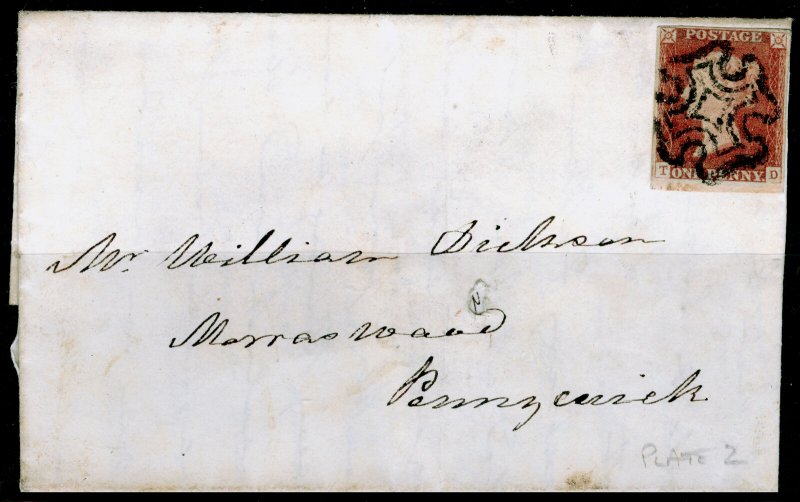 POSTAGE
T ONE PENNY D
Mr William Dickson
Morraswood
Pennycuick
PLATE 2